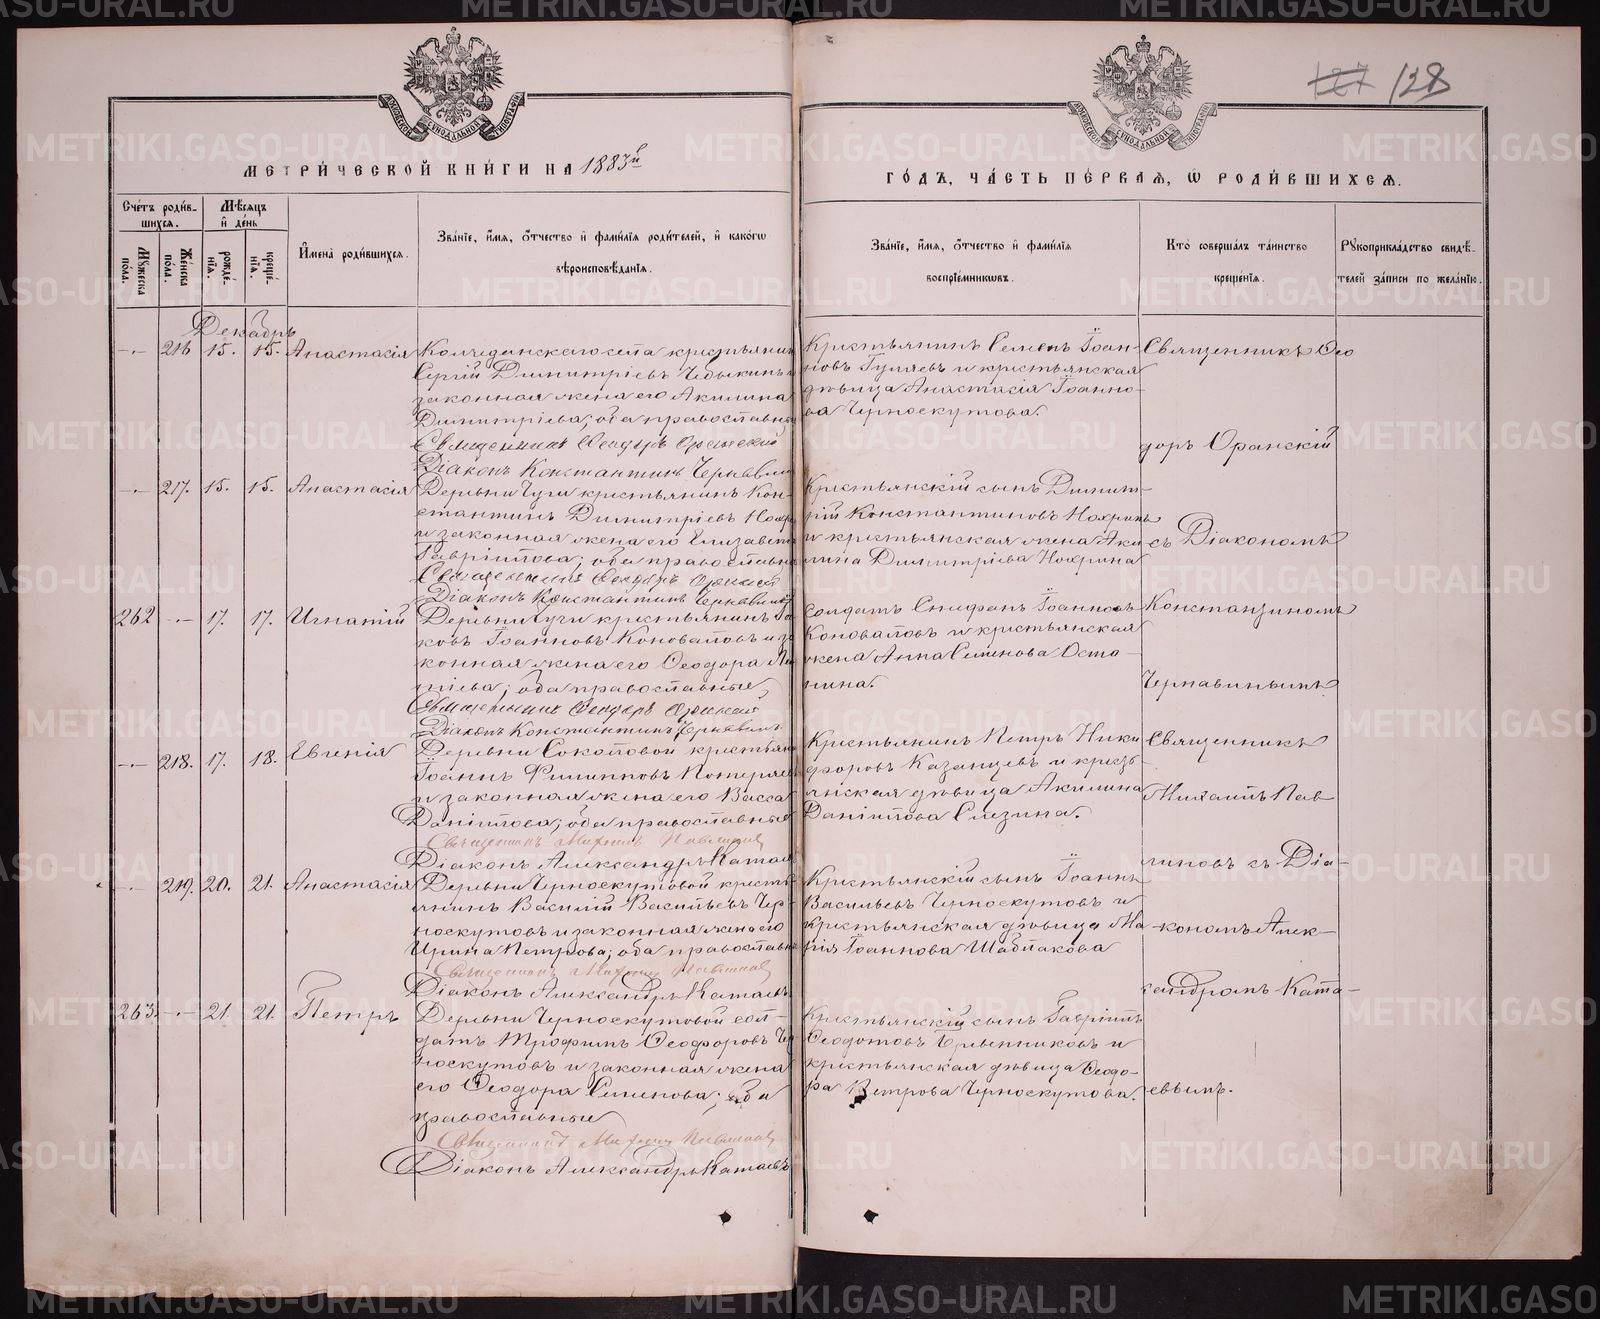 128
МЕТРИ́ЧЕСКОЙ КНИ́ГИ НА 1883й
ГО́ДЪ, ЧА́СТЬ ПЕ́РВАЯ, Ѡ РОДИ́ВШИХСѦ.
Сче́тъ роди́в-
шихсѧ.
Мꙋжеска
по́ла.
Же́нска
по́ла.
Мѣ́сѧцъ
и҆ де́нь
рожде́-
нїѧ.
креще́-
нїѧ.
И҆мена̀ роди́вшихсѧ.
Зва́нїе, и҆́мѧ, ѻ҆́тчество и҆ фами́лїѧ роди́телей, и҆ како́гѡ
вѣроисповѣ́данїѧ.
Зва́нїе, и҆́мѧ, ѻ҆́тчество и҆ фами́лїѧ
воспрїе́мникѡвъ.
Кто̀ соверша́лъ та́инство
креще́нїѧ.
Рꙋкоприкла́дство свидѣ́-
телей за́писи по жела́нїю.
Декабрь
216 15. 15. Анастасія
Колчеданскаго села крестьянин
Сергій Димитріевъ Чебыкинъ и
законная жена его Акилина
Димитріева; оба православны
Священникъ Ѳеодоръ Оранскій
Діаконъ Константинъ Чернавин
Крестьянинъ Семенъ Іоан-
новъ Гуляевъ и крестьянская
дѣвица Анастасія Іоанно-
ва Черноскутова.
Священникъ Ѳео
доръ Оранскій
217. 15. 15. Анастасія
Деревни Чуги крестьянинъ Кон-
стантинъ Димитріевъ Нохри
и законная жена его Елизавета
Гавріилова; оба православны
Священникъ Ѳеодоръ Оранскій
Діаконъ Константинъ Чернавинъ
Крестьянскій сынъ Димит-
рій Константиновъ Нохринъ
и крестьянская жена Аки-
лина Димитріева Нохрина
съ Діакономъ
262 17. 17. Игнатій
Деревни Чуги крестьянинъ Іа
ковъ Іоанновъ Коноваловъ и за
конная жена его Ѳеодора
оба православные
Священникъ Ѳеодоръ Оранскій
Діаконъ Константинъ Чернавинъ
Солдатъ Іоанновъ
Коноваловъ и крестьянская
жена Анна Семенова Оста-
нина.
Константиномъ
Чернавинымъ
218. 17. 18. Евгенія
Деревни Соколовой крестьяни
Іоаннъ Филипповъ Потеряев
и законная жена его Васса
Даніилова; оба православные
Священникъ Михаилъ Павлиновъ
Діаконъ Александръ Катаев
Крестьянинъ Петръ Ники
форовъ Казанцевъ и кресть-
янская дѣвица Акилина
Даніилова Слизина.
Священникъ
Михаилъ Пав
линовъ съ Діа-
219. 20. 21. Анастасія
Деревни Черноскутовой кресть-
янинъ Василій Васильевъ Чер-
носкутовъ и законная жена его
Ирина Петрова; оба православны
Священникъ Михаилъ Павлиновъ
Діаконъ Александръ Катаевъ
Крестьянскій сынъ Іоаннъ
Васильевъ Черноскутовъ и
крестьянская дѣвица Ма-
рія Іоаннова Шаблакова
кономъ Алек-
сандромъ Ката-
263. 21. 21. Петръ
Деревни Черноскутовой сол-
датъ Трофимъ Ѳеодоровъ Чер
носкутовъ и законная жена
его Ѳеодора Семенова; оба
православные
Священникъ Михаилъ Павлиновъ
Діаконъ Александръ Катаевъ
Крестьянскій сынъ Гавріилъ
Ѳеодотовъ и
крестьянская дѣвица Ѳеодо-
ра Петрова Черноскутова.
евымъ.
METRIKI.GASO-URAL.RU